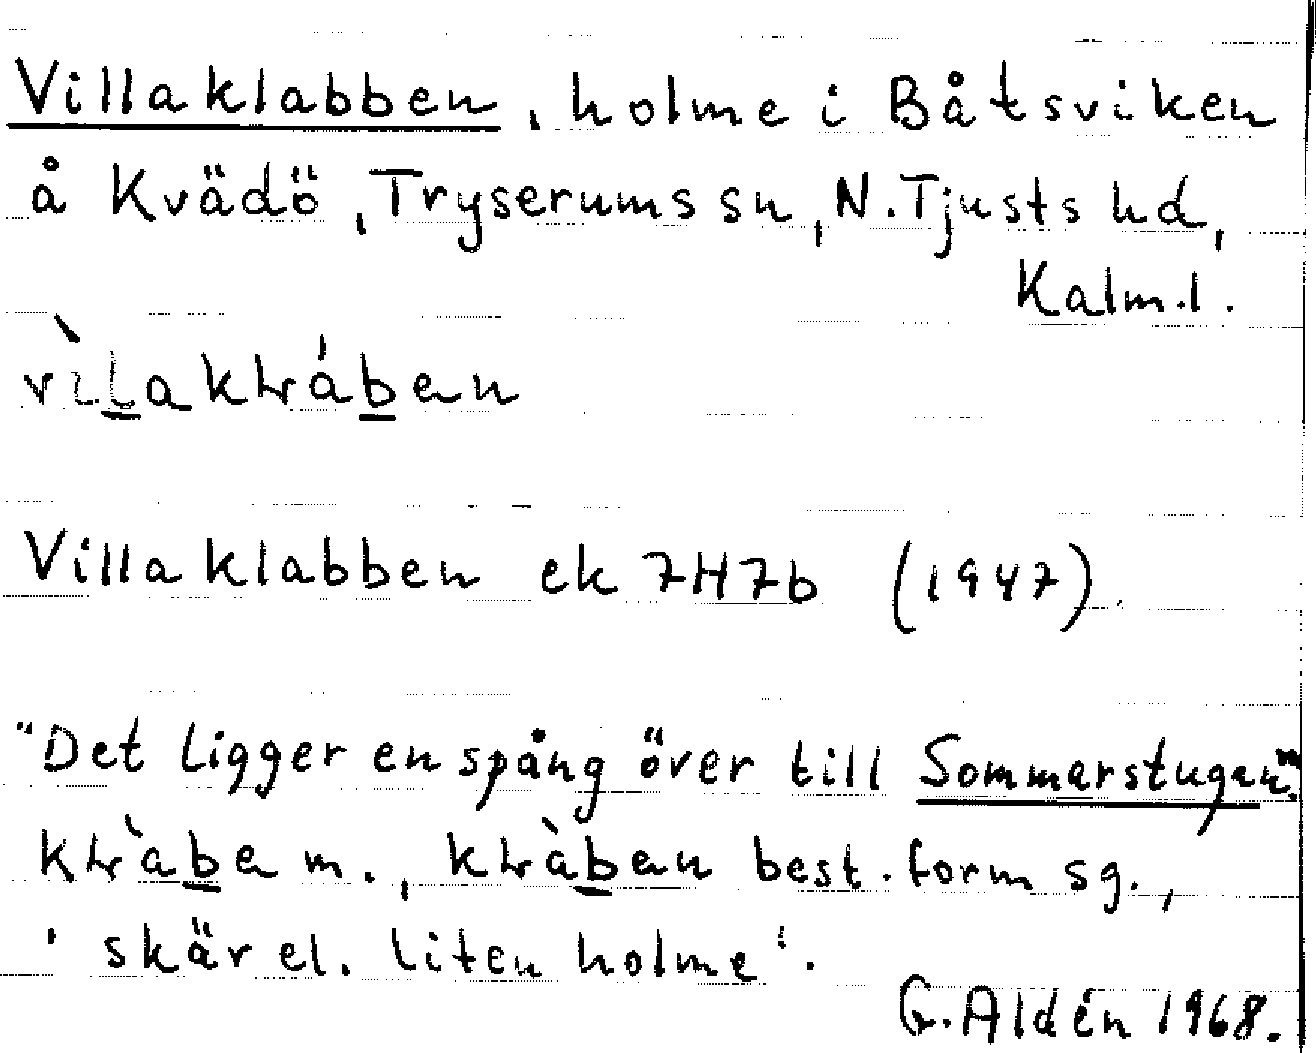 Villaklabben, holme i Båtsviken
å Kvädö, Tryserums sn, N. Tjusts hd,
Kalm. l.
Villaklabben ek 7H7b (1947)
"Det ligger en spång över till Sommarstugan".
m., best. form sg.,
'skär el. liten holme'.
G. Aldén 1968.